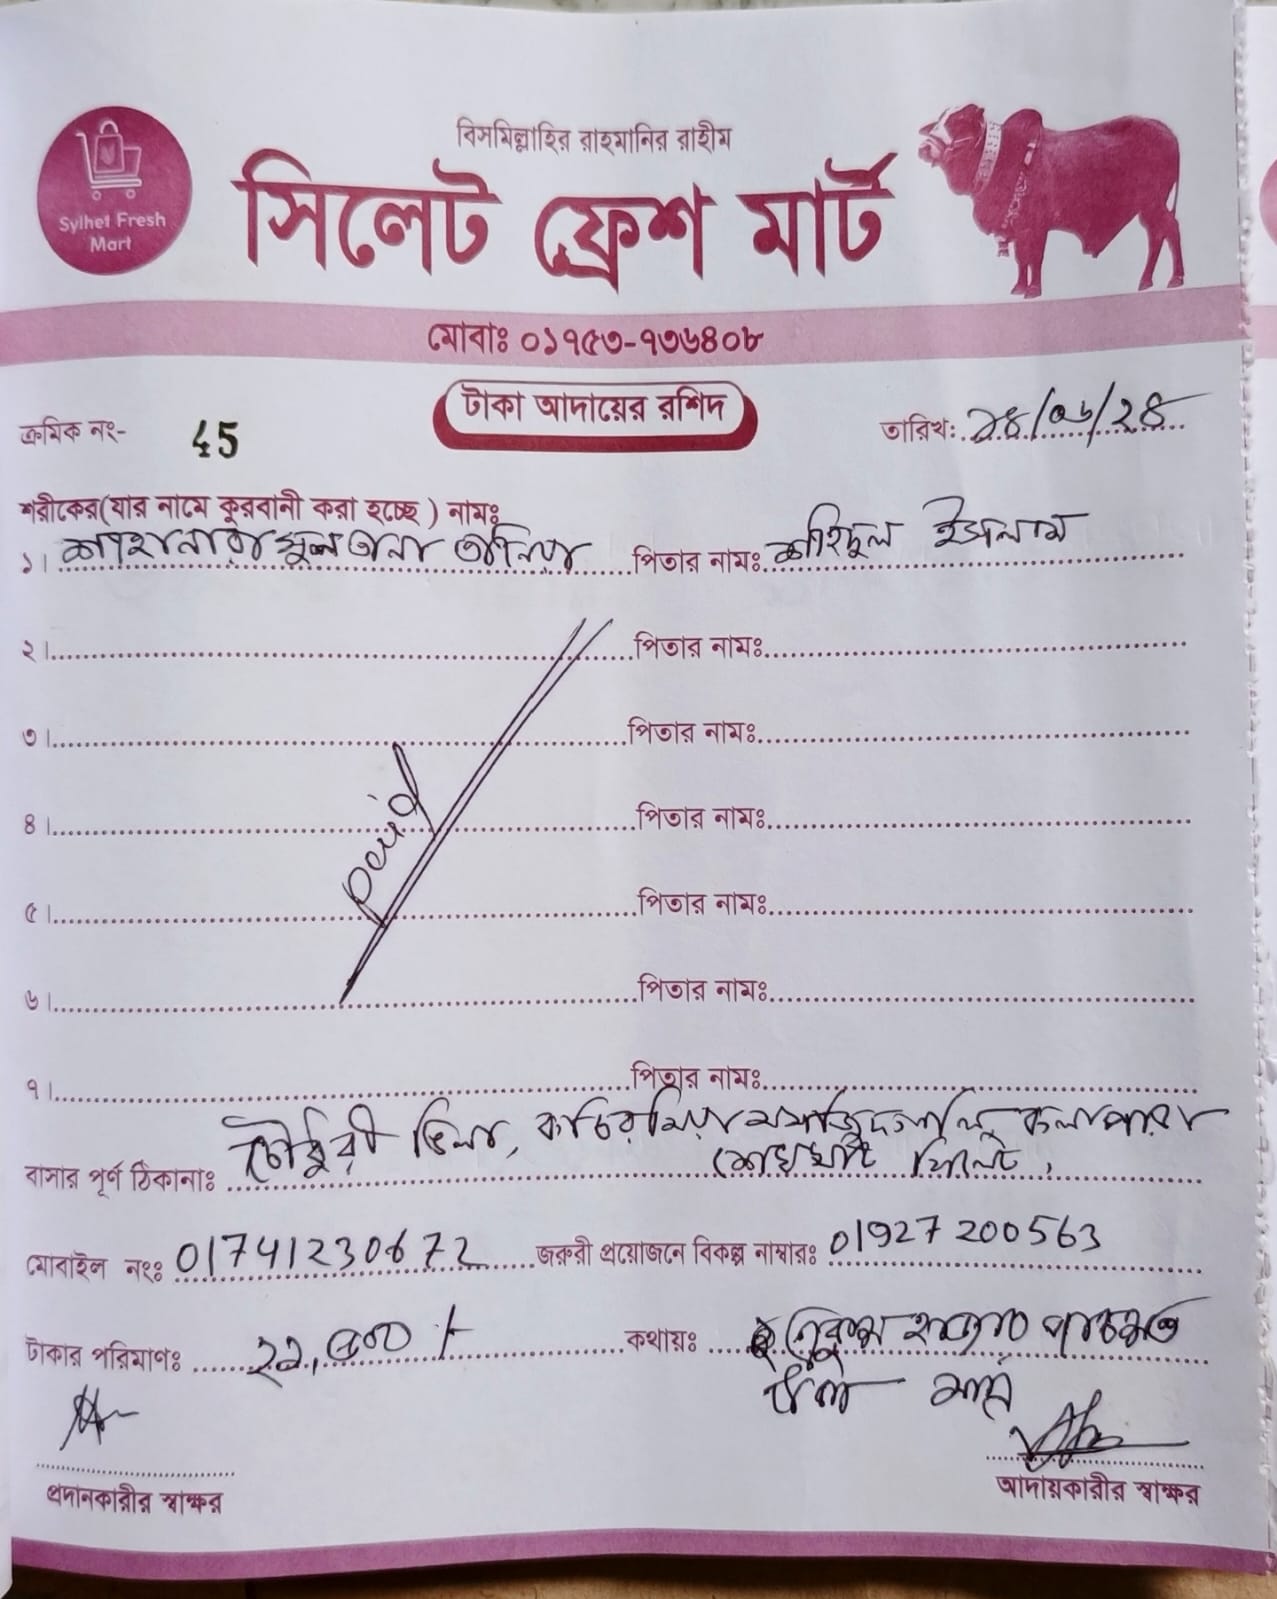 Sylhet Fresh
Mart
বিসমিল্লাহির রাহমানির রাহীম
সিলেট ফ্রেশ মার্ট
মোবাঃ ০১৭৫৩-৭৩৬৪০৮
টাকা আদায়ের রশিদ
ক্রমিক নং- 45 তারিখ: ১৪/০৬/২৪
শরীকের(যার নামে কুরবানী করা হচ্ছে ) নামঃ
১। শাহানারা সুলতানা তানিয়া পিতার নামঃ শহিদুল ইসলাম
২। পিতার নামঃ
৩। পিতার নামঃ
৪। পিতার নামঃ
paid
৫। পিতার নামঃ
৬। পিতার নামঃ
৭। পিতার নামঃ
বাসার পূর্ণ ঠিকানাঃ চৌধুরী ভিলা, কলাপারা
মোবাইল নংঃ 01741230672 জরুরী প্রয়োজনে বিকল্প নাম্বারঃ 01927200563
টাকার পরিমাণঃ ২১,৫০০/- কথায়ঃ একুশ হাজার পাচশত
টাকা মাত্র
প্রদানকারীর স্বাক্ষর আদায়কারীর স্বাক্ষর